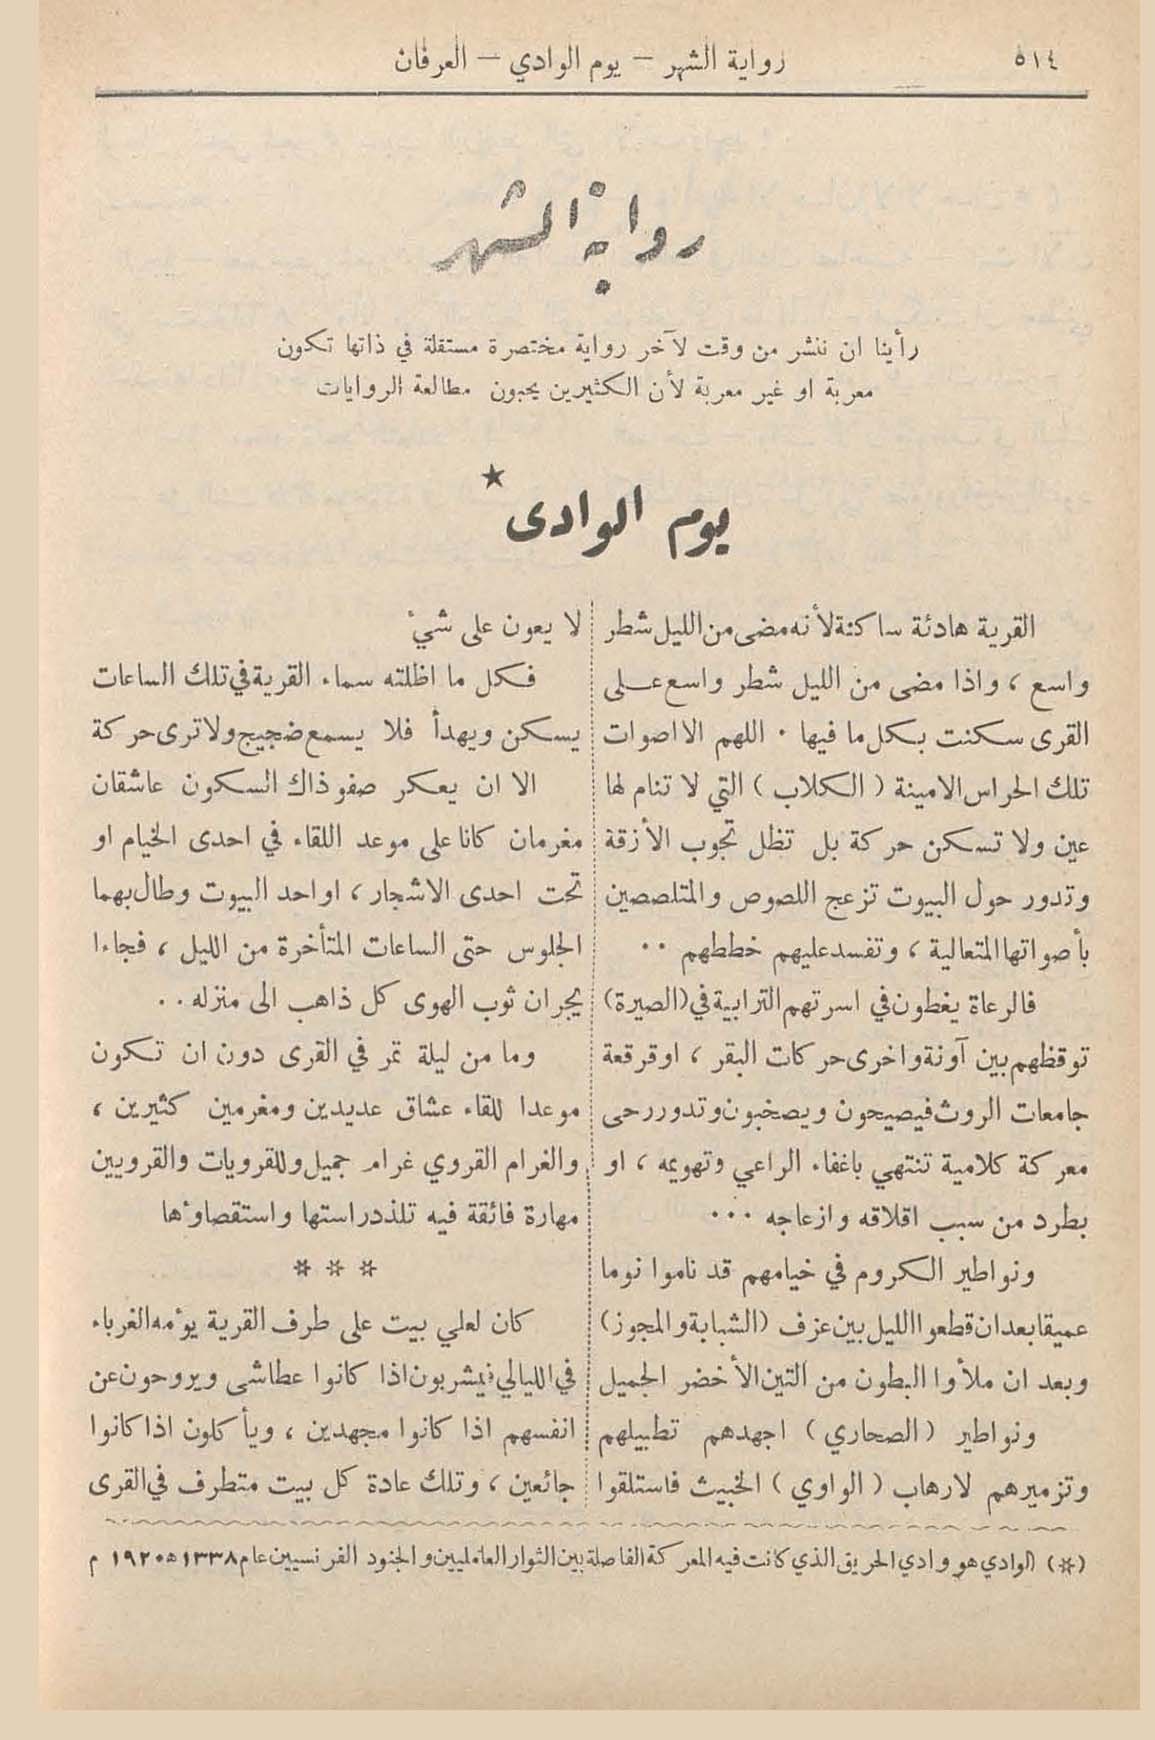 ٥١٤
رواية الشهر — يوم الوادي — العرفان
رواية الشهر
رأينا ان ننشر من وقت لآخر رواية مختصرة مستقلة في ذاتها تكون
معربة او غير معربة لأن الكثيرين يحبون مطالعة الروايات
يوم الوادى ★
القرية هادئة ساكنة لأنه مضى من الليل شطر
واسع ، واذا مضى من الليل شطر واسع عـلى
القرى سكنت بكل ما فيها . اللهم الا اصوات
تلك الحراس الامينة ( الكلاب ) التي لا تنام لها
عين ولا تسكن حركة بل تظل تجوب الأزقة
وتدور حول البيوت تزعج اللصوص والمتلصصين
بأصواتها المتعالية ، وتفسد عليهم خططهم . .
فالرعاة يغطون في اسرتهم الترابية في (الصيرة)
توقظهم بين آونة واخرى حركات البقر ، او قرقعة
جامعات الروث فيصيحون ويصخبون وتدور رحى
معركة كلامية تنتهي باغفاء الراعي وتهويمه ، او
بطرد من سبب اقلاقه وازعاجه . . .
ونواطير الكروم في خيامهم قد ناموا نوما
عميقا بعد ان قطعوا الليل بين عزف (الشبابة والمجوز)
وبعد ان ملأوا البطون من التين الأخضر الجميل
ونواطير ( الصحاري ) اجهدهم تطبيلهم
وتزميرهم لارهاب ( الواوي ) الخبيث فاستلقوا
لا يعون على شيء
فكل ما اظلته سماء القرية في تلك الساعات
يسكن ويهدأ فلا يسمع ضجيج ولا ترى حركة
الا ان يعكر صفو ذاك السكون عاشقان
مغرمان كانا على موعد اللقاء في احدى الخيام او
تحت احدى الاشجار ، او احد البيوت وطال بهما
الجلوس حتى الساعات المتأخرة من الليل ، فجاءا
يجران ثوب الهوى كل ذاهب الى منزله . .
وما من ليلة تمر في القرى دون ان تكون
موعدا للقاء عشاق عديدين ومغرمين كثيرين ،
والغرام القروي غرام جميل وللقرويات والقرويين
مهارة فائقة فيه تلذ دراستها واستقصاؤها
* * *
كان لعلي بيت على طرف القرية يؤمه الغرباء
في الليالي فيشربون اذا كانوا عطاشى ويروحون عن
انفسهم اذا كانوا مجهدين ، ويأكلون اذا كانوا
جائعين ، وتلك عادة كل بيت متطرف في القرى
(*) الوادي هو وادي الحريق الذي كانت فيه المعركة الفاصلة بين الثوار العامليين والجنود الفرنسيين عام ١٣٣٨ه ١٩٢٠ م